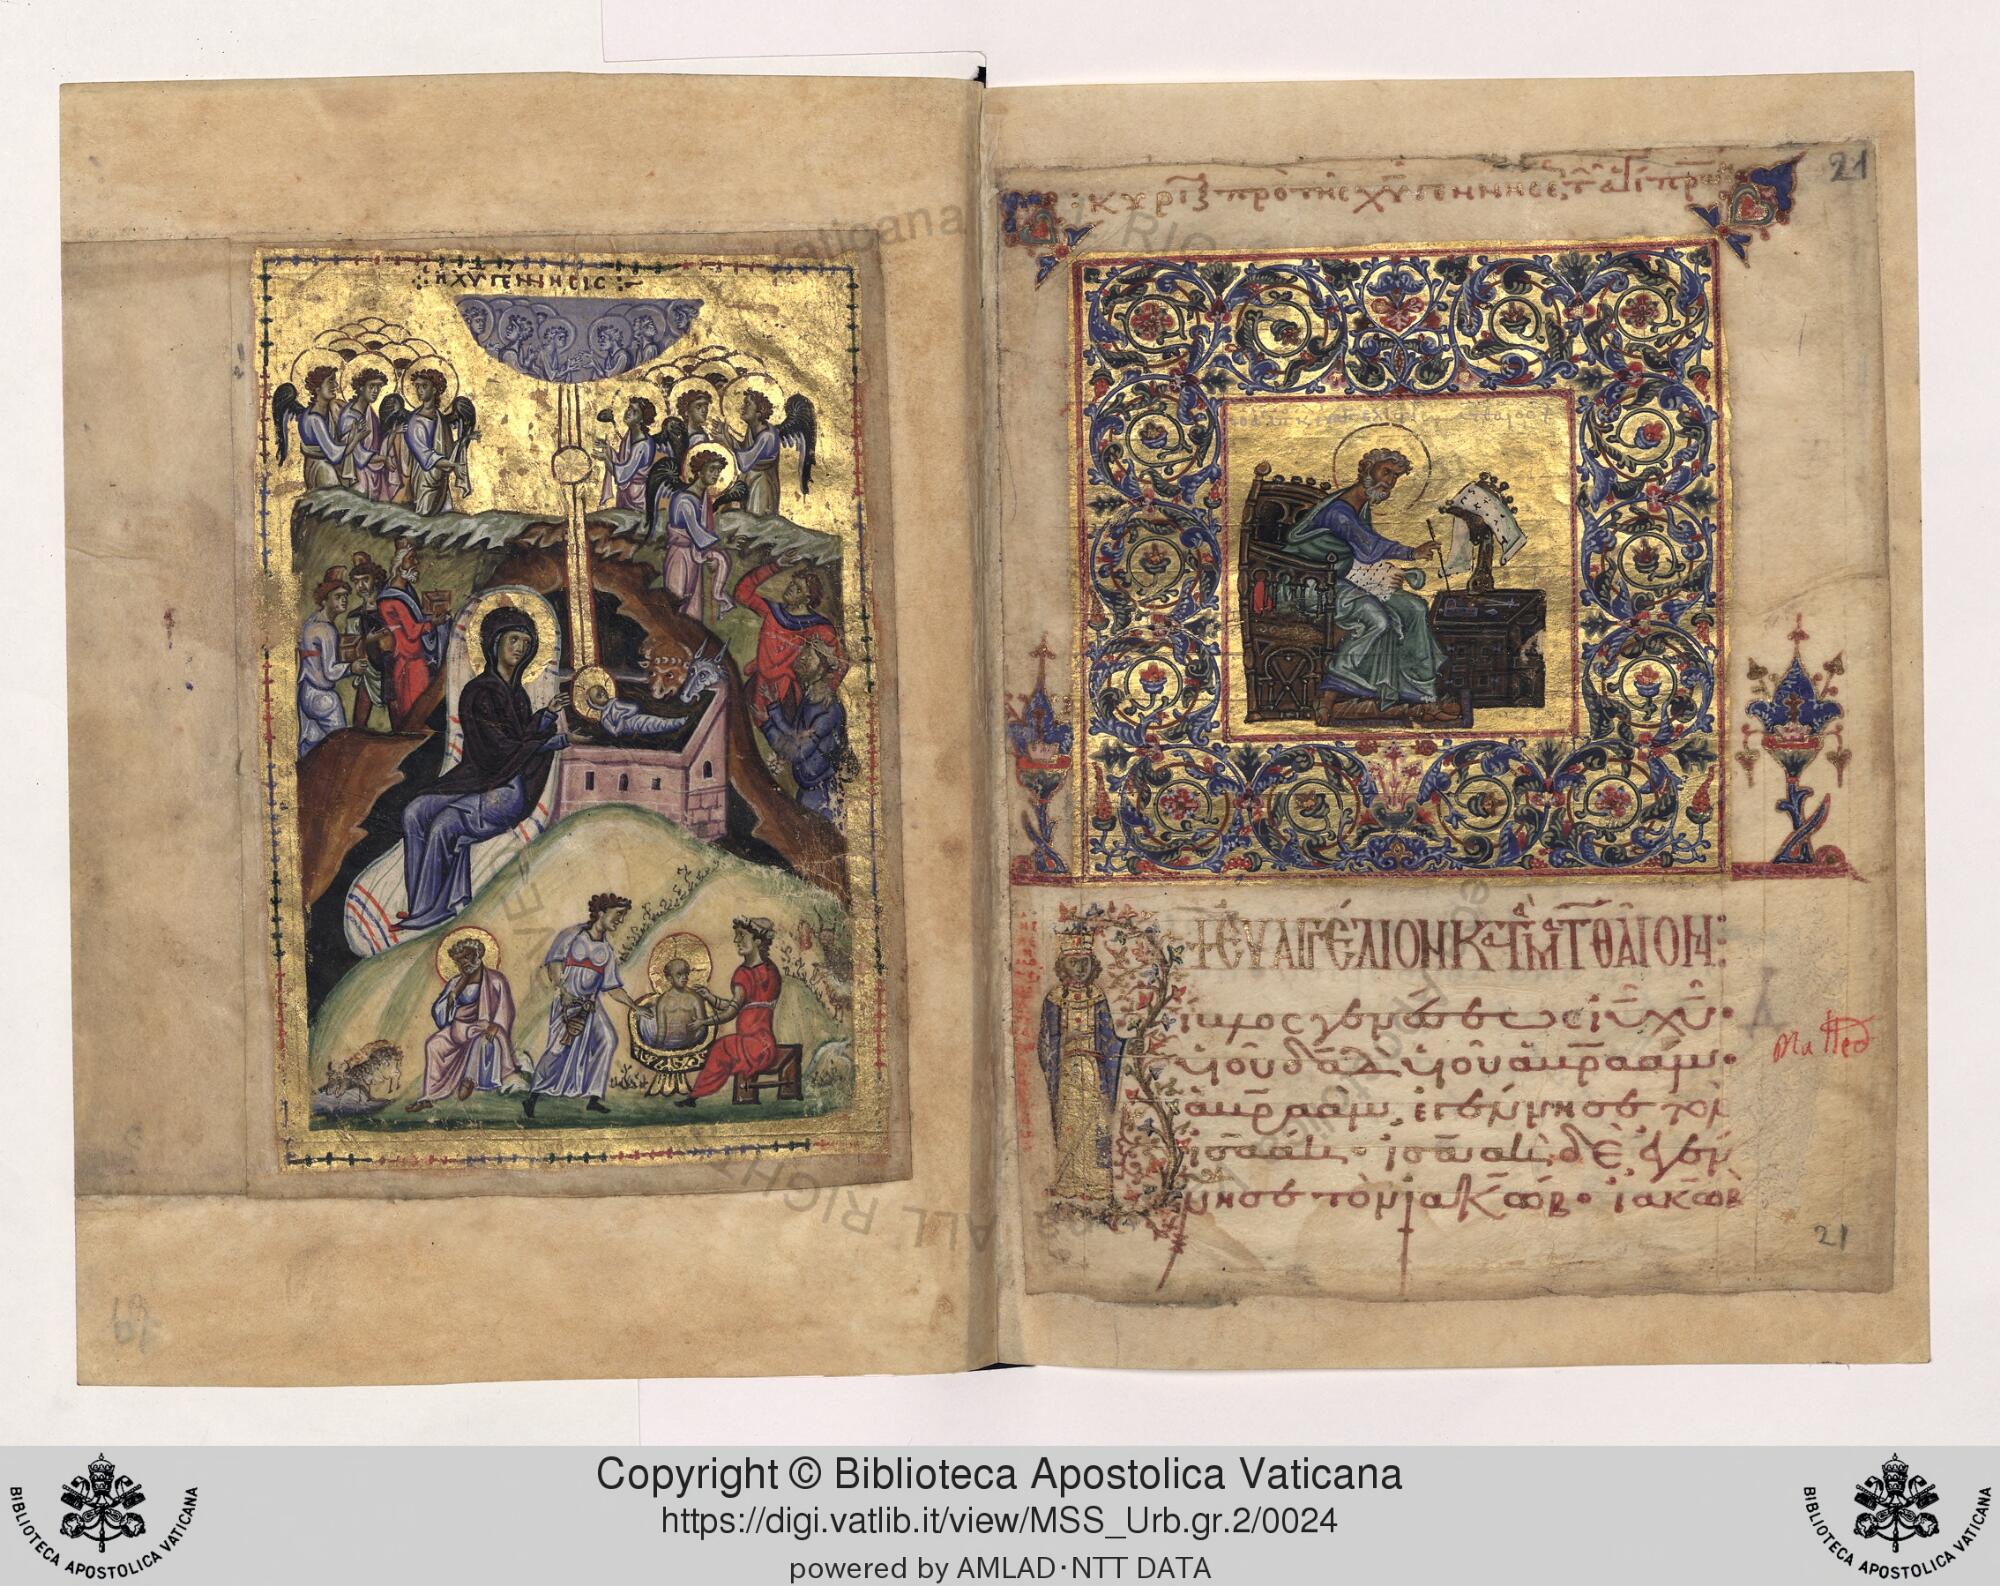 Η ΧΥ ΓΕΝΝΗCΙC
21
ΚΥΡΙ πρὸ τῆς ΧΥ ΓΕΝΝΗCΕ
+ ΕΥΑΓΓΕΛΙΟΝ ΚΑΤΑ ΜΑΤΘΑΙΟΝ:
ίβλος γενέσεως ΙΥ ΧΥ·
υἱοῦ δαδ υἱοῦ ἀβραάμ·
ἀβραὰμ ἐγέννησε τὸν
ἰσαάκ· ἰσαὰκ δὲ ἐγέν
νησε τὸν ἰακώβ· ἰακὼβ
Matteo
21
Copyright © Biblioteca Apostolica Vaticana
https://digi.vatlib.it/view/MSS_Urb.gr.2/0024
powered by AMLAD·NTT DATA
BIBLIOTECA APOSTOLICA VATICANA
BIBLIOTECA APOSTOLICA VATICANA